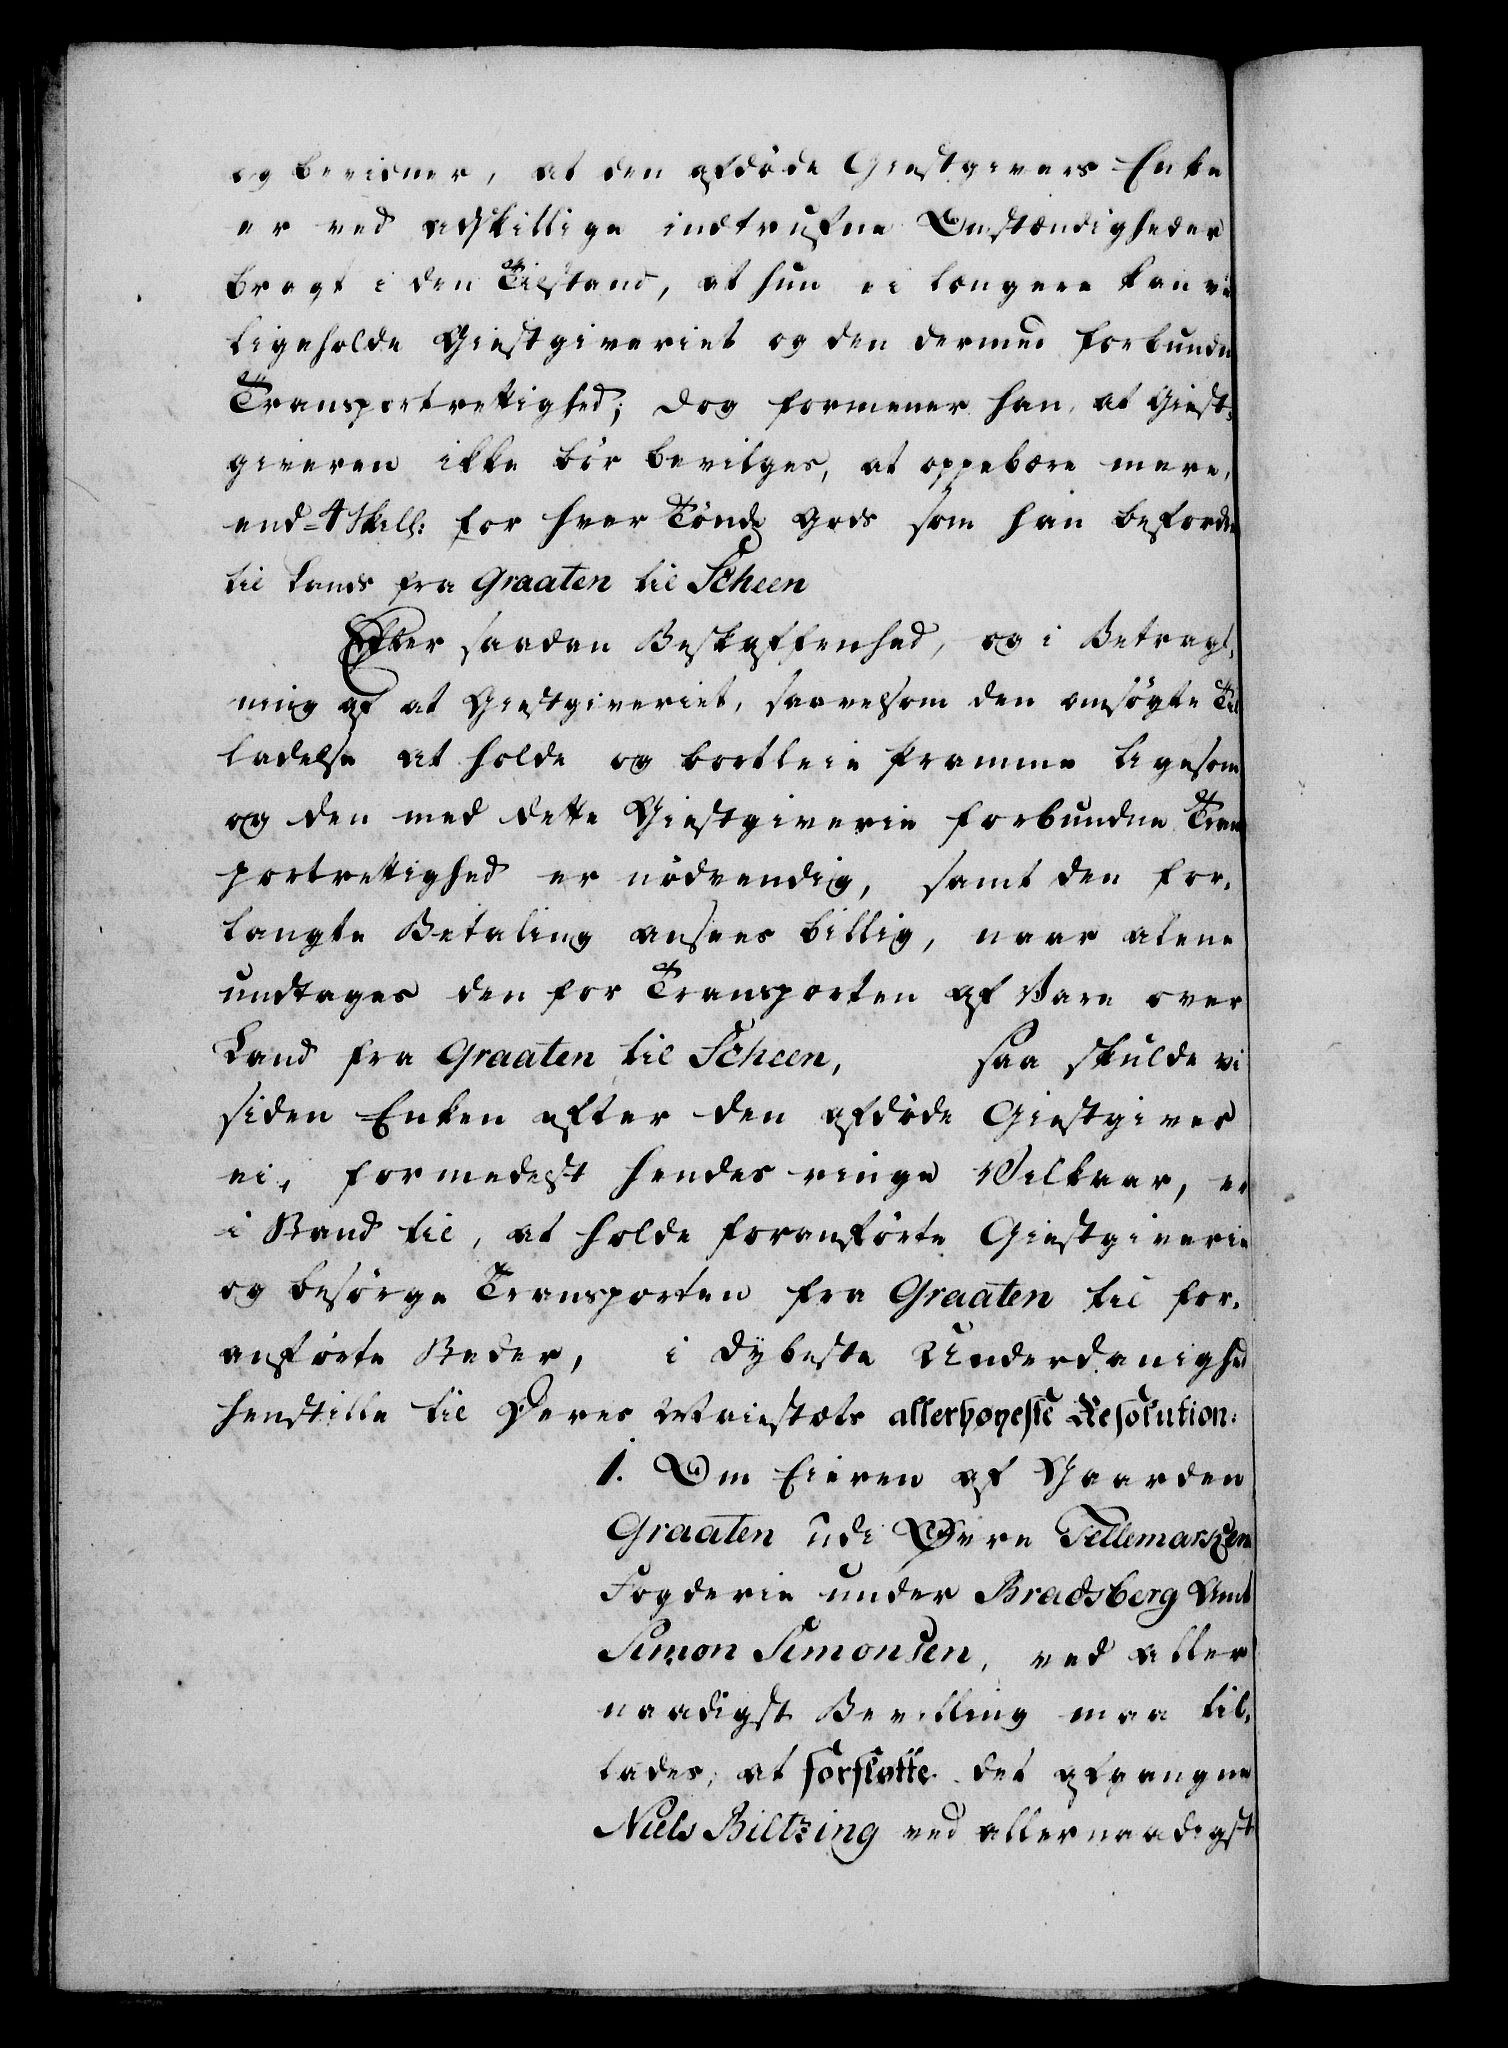 og beviiner, at den afdøde Giestgivers Enke
er ved adskillige indtrufne Omstændigheder
bragt i den Tilstand, at hun ei længere kan ved
ligeholde Giestgiveriet og den dermed forbundne
Transportrettighed; dog formener han, at Giest-
giveren ikke bør bevilges, at oppebære mere,
end 4 Skill: for hver Tønde Gods som han befordrer
til Lands fra Graaten til Scheen
Efter saadan Beskaffenhed, og i Betragt-
ning af at Giestgiveriet, saavelsom den ansøgte Til
ladelse at holde og bortleie Pramme ligesom
og den med dette Giestgiverie forbundne Trans
portrettighed er nødvendig, samt den for-
langte Betaling ansees billig, naar alene
undtages den for Transporten af Vare over
Land fra Graaten til Scheen, saa skulde vi
siden Enken efter den afdøde Giestgiver
ei, formedelst hendes ringe Vilkaar, er
i Stand til, at holde foranførte Giestgiverie
og besørge Transporten fra Graaten til for-
anførte Steder, i dybeste Underdanighed
henstille til Deres Maiestæts allerhøyeste Resolution:
1. Om Eieren af Gaarden
Graaten udi Øvre Tellemarkens
Fogderie under Bradsberg Amt
Simon Simonsen, ved aller
naadigst Bevilling maa til-
lades, at forsætte det afgangne
Niels Biltzing ved allernaadigst